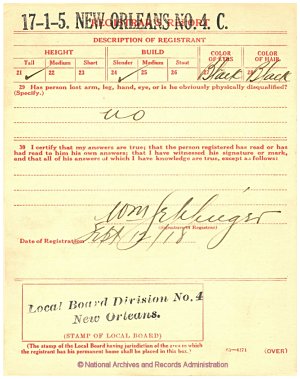 17-1-5. NEW ORLEANS NO. 4. C.
REGISTRAR'S REPORT
DESCRIPTION OF REGISTRANT
HEIGHT BUILD COLOR OF EYES COLOR OF HAIR
Tall Medium Short Slender Medium Stout
21 ✓ 22 23 24 ✓ 25 26 27 Black 28 Black
29 Has person lost arm, leg, hand, eye, or is he obviously physically disqualified?
(Specify.)
no
30 I certify that my answers are true; that the person registered has read or has
had read to him his own answers; that I have witnessed his signature or mark,
and that all of his answers of which I have knowledge are true, except as follows:
Wm
(Signature of Registrar)
Date of Registration Sept 12/18
Local Board Division No. 4
New Orleans.
(STAMP OF LOCAL BOARD)
(The stamp of the Local Board having jurisdiction of the area in which
the registrant has his permanent home shall be placed in this box.)
(OVER)
© National Archives and Records Administration